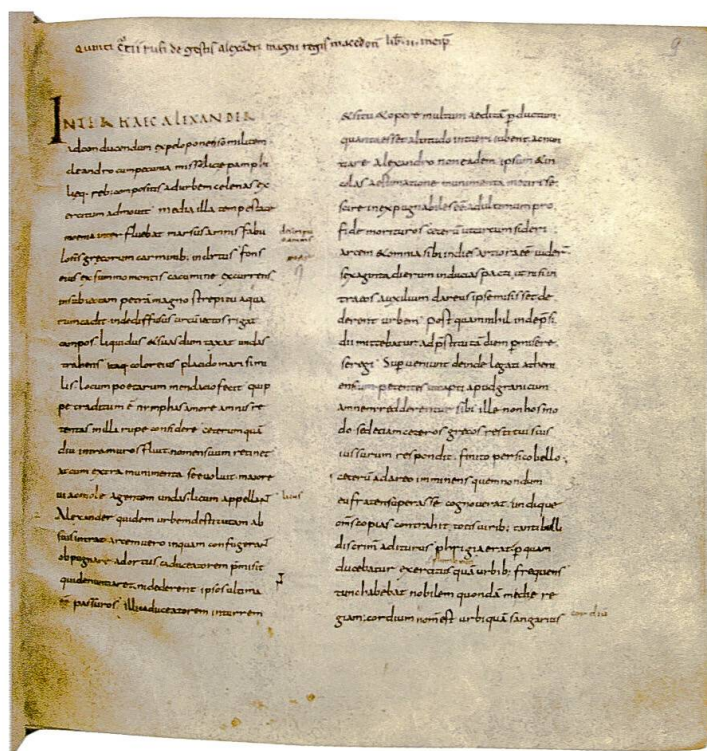 QUINTI CTII rufi de gestis alexādri magni regis macedon lib. II. incip.
9
INTER HAEC ALEXANDER
adconducendum expeloponenso militem
cleandro cumpecunia misso licie pamphi
lieq. reb; compositis adurbem celenas ex
ercitum admovit media illa tempestate
moenia inter fluebat marsus amnis fabu
losis grecorum carminib; inclitus fons
eius exsummo montis cacumine excurrens
insubiectam petrā magno strepitu aqua
rum cadit indediffusus circū iectos rigat
campos liquidus &suas dum taxat undas
trahens itaq; color eius placido mari simi
lis. locum poetarum mendacio fecit quip
pe traditum ē nymphas amore amnis re
tentas inilla rupe considere ceterum quā
diu intramuros fluit nomen suum retinet
atcum extra munimenta se evoluit maiore
vi acmole agentem undas. licum appellant
licus
Alexander quidem urbem destitutam ab
suis intrat arcem vero inquam confugerant
obpognare adortus caduceatorem p̄misit
qui denuntiaret nidederent ipsos ultima
eē passuros illi caduceatorem inturrem
&situ &opere multum aeditā pductum.
quanta esset altitudo intueri iubent acnun
tiare alexandro non eadem ipsum &in
colas aestimatione munimenta metiri se
scire inexpugnabiles eē adultimum pro
fide morituros ceterū ut circumsideri
arcem &omnia sibi indies artiora eē viderunt
sexaginta dierum inducias pacti, ut nisi in
tra eos auxilium dareus ipse misisset de
derent urbem post quam nihil inde p̄si
dii mittebatur ad p̄stitutā diem pmisere
se regi Superveniunt deinde legati atheni
ensium petentes ut capti apud granicum
amnem redderentur sibi ille non hos mo
do sed etiam ceteros grecos restitui suis
iussurum respondit. finito persico bello;
ceterū adareo imminens quem nondum
eufraten superasse cognoverat undique
oms copias contrahit totis virib; tanti belli
discrimē aditurus phrigia erat p quam
ducebatur exercitus quā urbib; frequens
tunc habebat nobilem quondā mediae re
giam; cordium nom̄ est urbi quā sangarius
cordiū